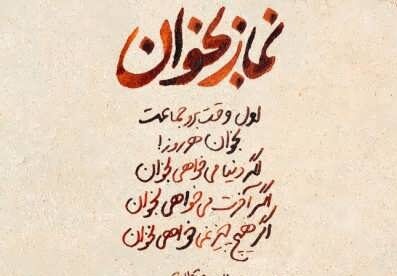 نماز بخوان
اول وقت برو جماعت
بخوان هر روز!
اگر دنیا می خواهی بخوان
اگر آخرت می خواهی بخوان
اگر هیچ چیز نمی خواهی بخوان